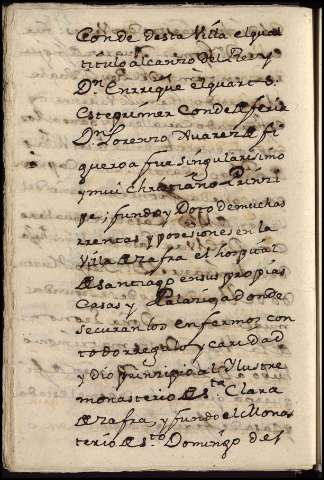 Conde desta Villa el qual
titulo alcanzo del Rey
Dn. Enrrique el quarto.
Este primer Conde de feria
Dn. Lorenzo Suarez de fi
gueroa fue singularisimo
y mui Christiano Prinzi
pe; fundo y Doto de muchas
rrentas, y posesiones en la
Villa de zafra el hospital
de santiago en sus propias
Casas y Palazio a donde
se curan los enfermos con
todo rregalo y caridad
y dio prinzipio al Ylustre
monasterio de Sta. Clara
de zafra, y fundo el Monas
terio de sto. Domingo del